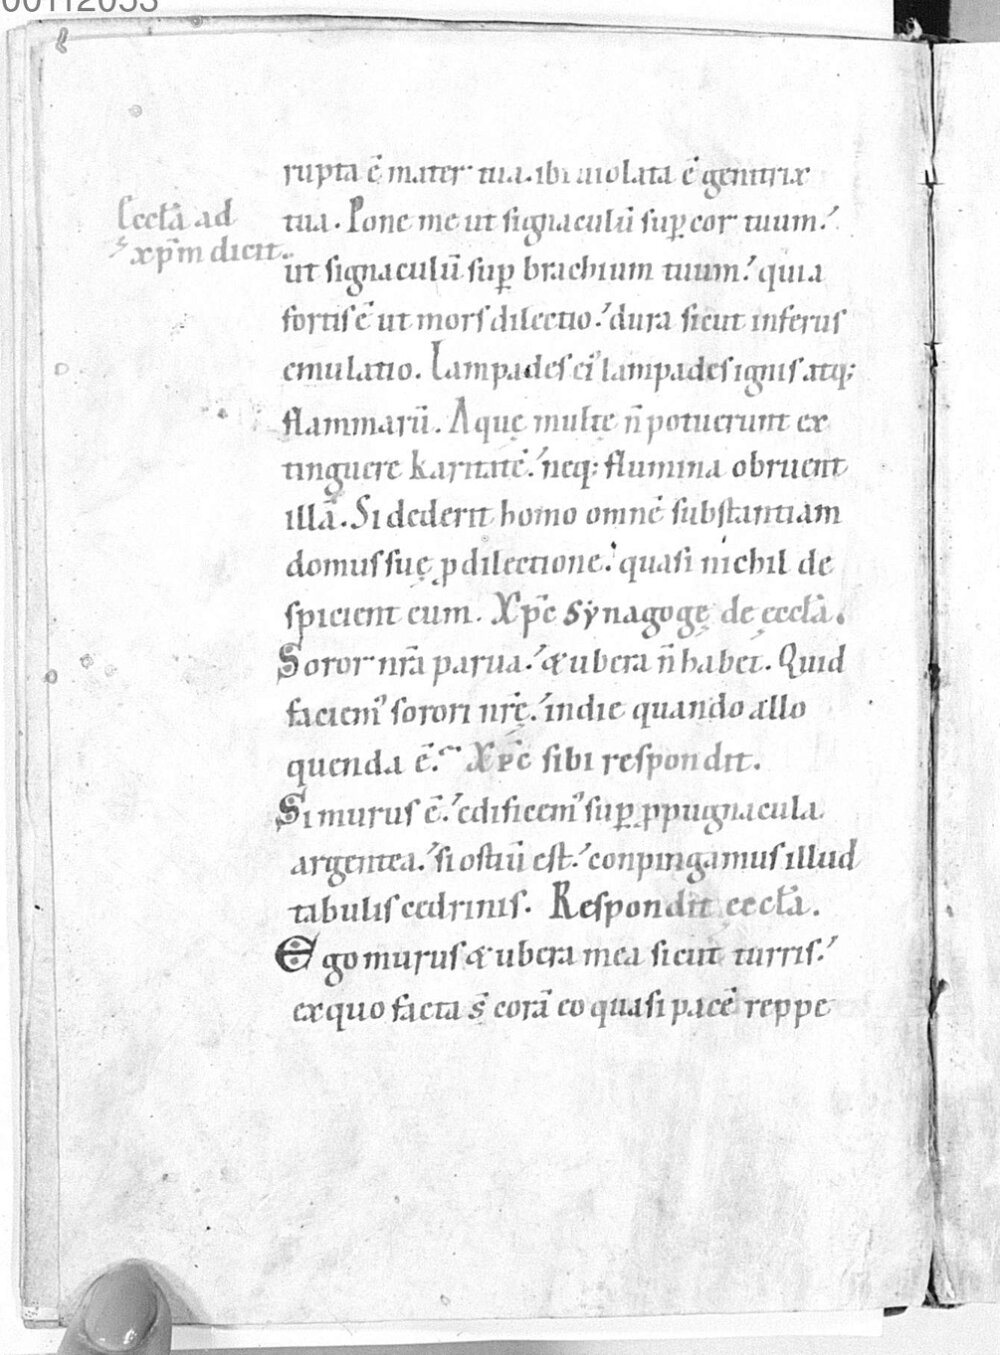 00112053
rupta ē mater tua. ibi uiolata ē genitrix
Eccła ad
xp̄m dicit.
tua. Pone me ut signaculū sup̱ cor tuum.
ut signaculū sup̱ brachium tuum. quia
fortis ē ut mors dilectio. dura sicut inferus
emulatio. Lampades ei' lampades ignis atq;
flammarū. Aquę multę n̄ potuerunt ex
tinguere karitatē. neq; flumina obruent
illā. Si dederit homo omnē substantiam
domus suę ꝓ dilectione. quasi nichil de
spicient eum. Xp̄c synagogę de eccła.
Soror nr̄a parua. & ubera n̄ habet. Quid
faciem' sorori nr̄ę. in die quando allo
quenda ē. Xp̄c sibi respondit.
Si murus ē. edificem' sup̱ ꝓpugnacula
argentea. si ostiū est. conpingamus illud
tabulis cedrinis. Respondit eccła.
Ego murus & ubera mea sicut turris.
ex quo facta s̄ corā eo quasi pacē reppe